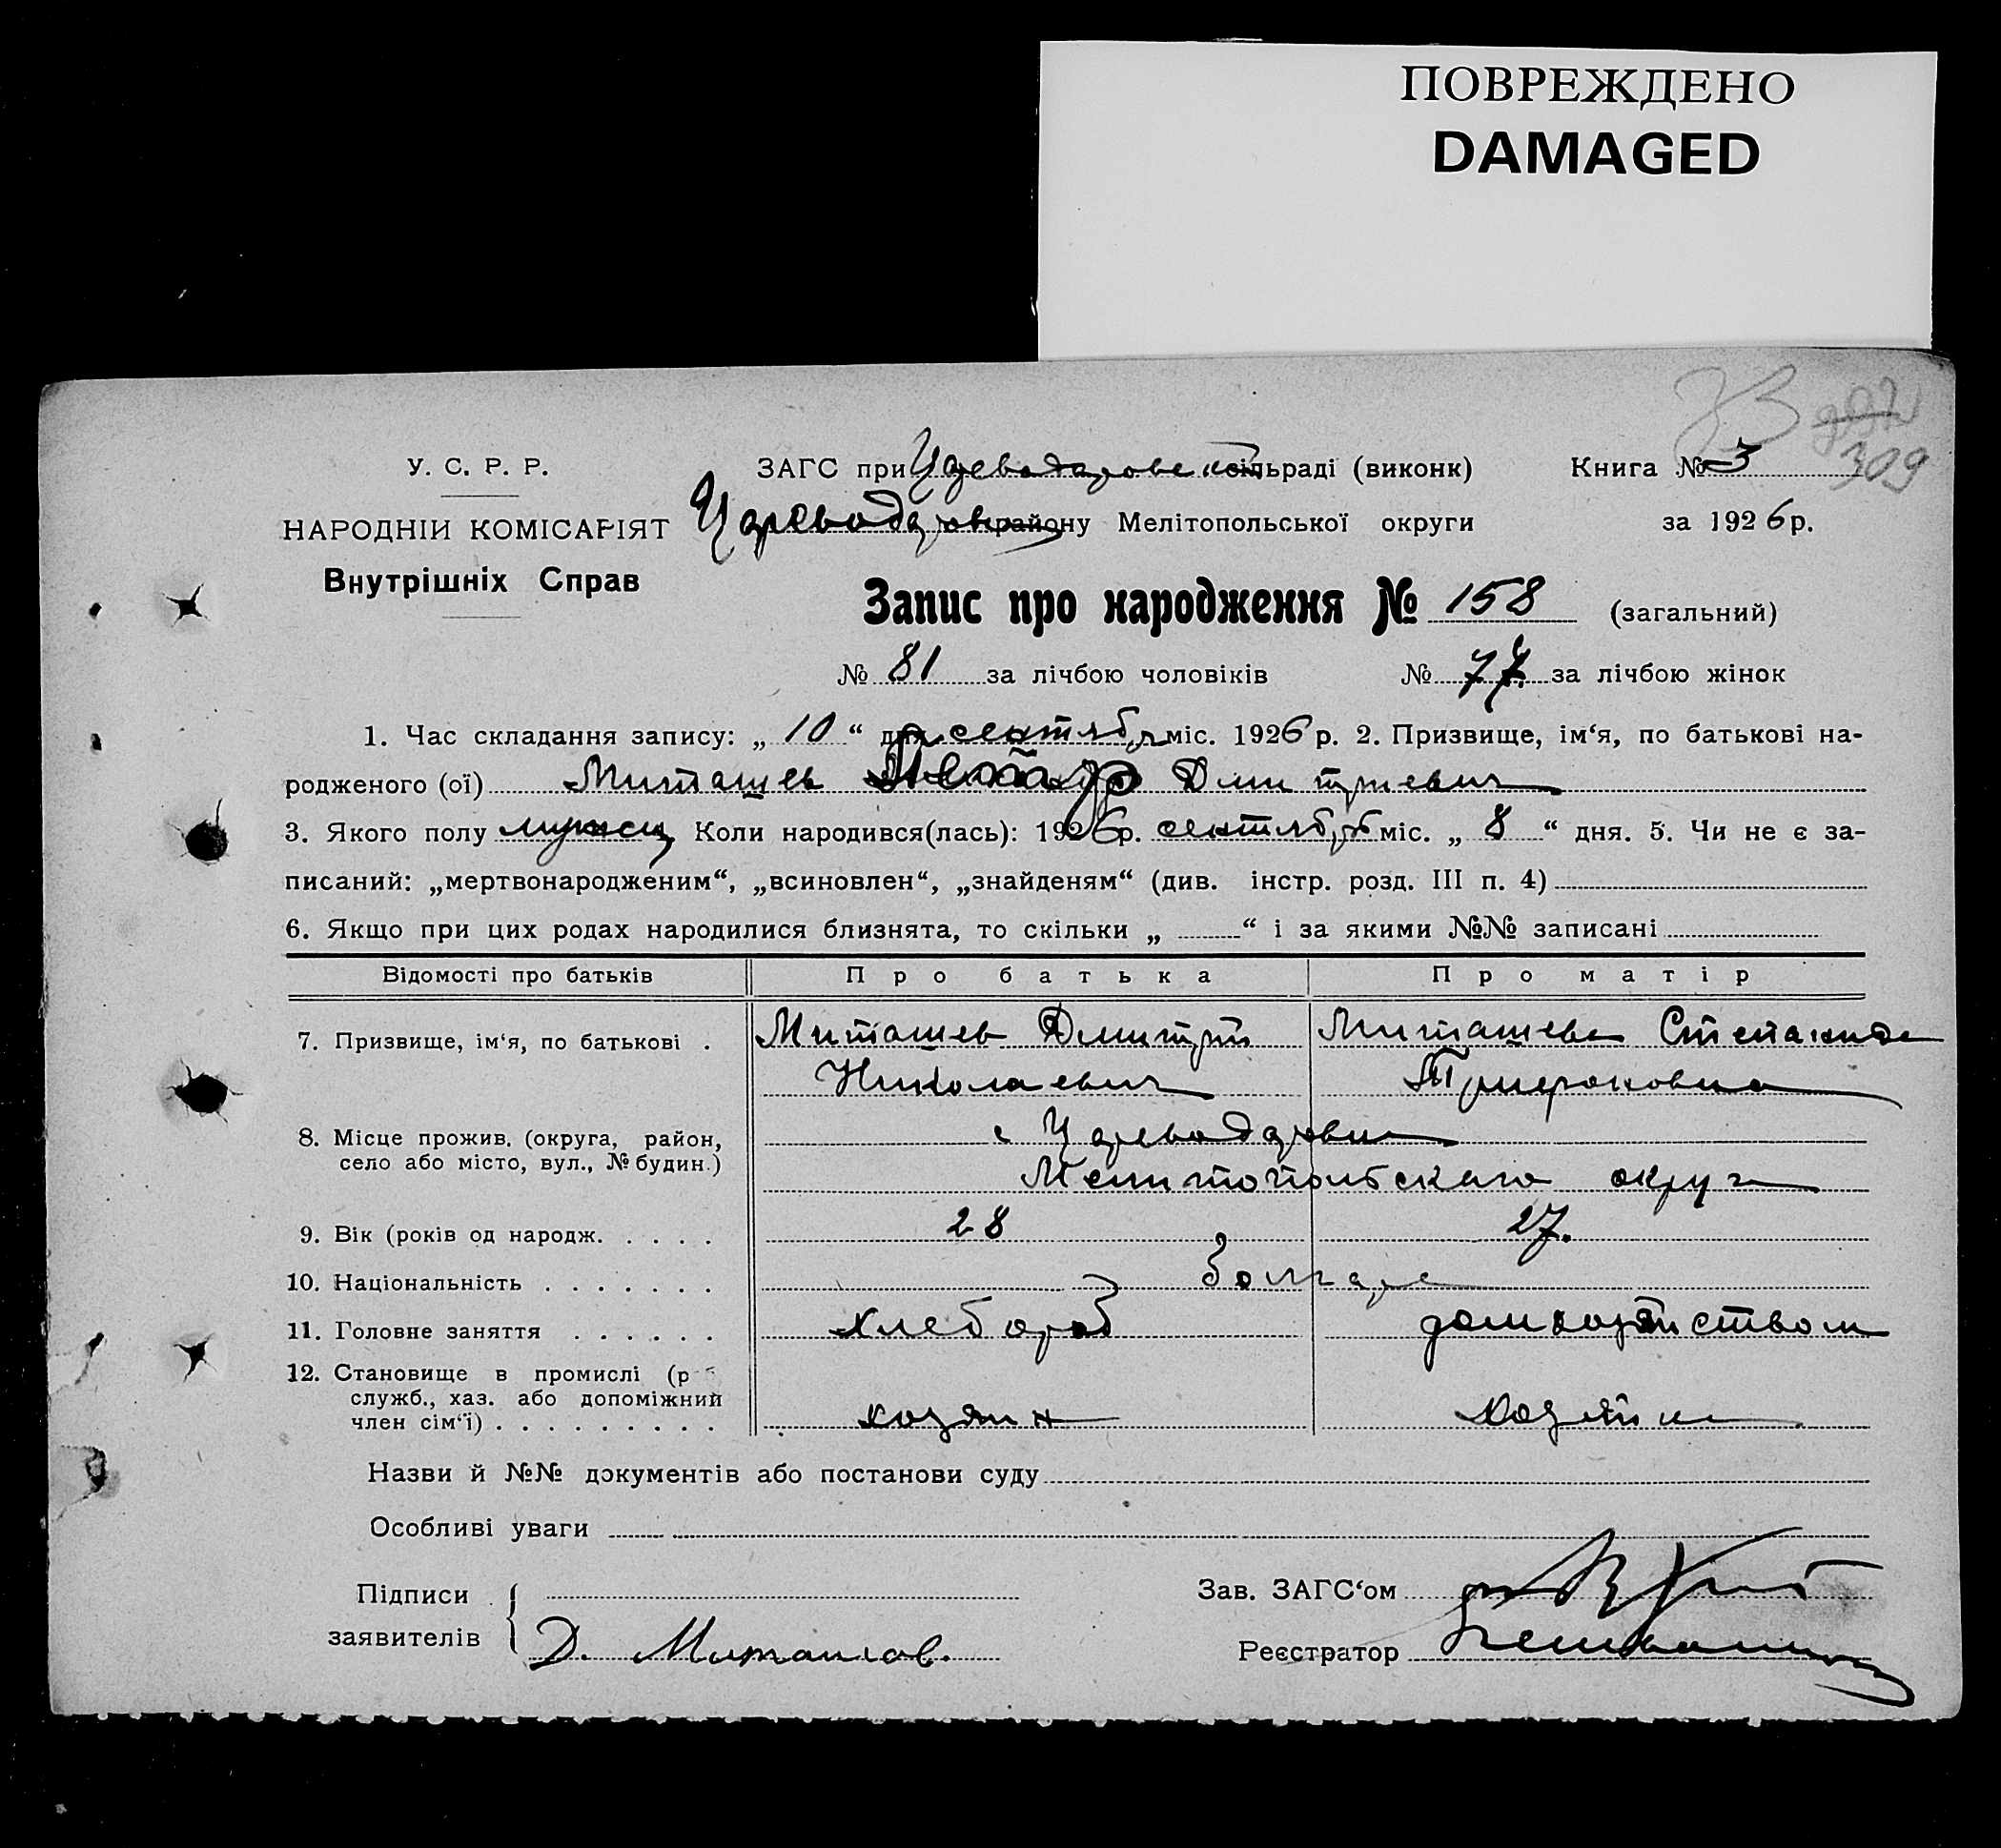 ПОВРЕЖДЕНО
DAMAGED
309
У. С. Р. Р.
НАРОДНІЙ КОМІСАРІЯТ
Внутрішніх Справ
ЗАГС при Цареводаровской сільраді (виконк) Книга № 3
району Мелітопольської округи за 1926 р.
Запис про народження № 158 (загальний)
№ 81 за лічбою чоловіків № 77 за лічбою жінок
1. Час складання запису: „ 10 “ дня сентября міс. 1926 р. 2. Призвище, ім‘я, по батькові на-
родженого (ої) Миташев Петр Дмитриевич
3. Якого полу мужск Коли народився(лась): 1926 р. сентября міс. „ 8 “ дня. 5. Чи не є за-
писаний: „мертвонародженим“, „всиновлен“, „знайденям“ (див. інстр. розд. III п. 4)
6. Якщо при цих родах народилися близнята, то скільки „ “ і за якими №№ записані
Відомості про батьків Про батька Про матір
7. Призвище, ім‘я, по батькові . Миташев Дмитрий Миташева Степанида
Николаевич
8. Місце прожив. (округа, район, с Цареводаровка
село або місто, вул., № будин.)
Мелитопольскаго округа
9. Вік (років од народж. . . . . 28 27.
10. Національність . . . . . . . болгаре
11. Головне заняття . . . . . . хлебороб домхозяйством
12. Становище в промислі (р
служб., хаз. або допоміжний
член сім‘ї) . . . . . . . . . хозяин хозяйка
Назви й №№ документів або постанови суду
Особливі уваги
Підписи
заявителів
Д. Миташов.
Зав. ЗАГС‘ом
Реєстратор